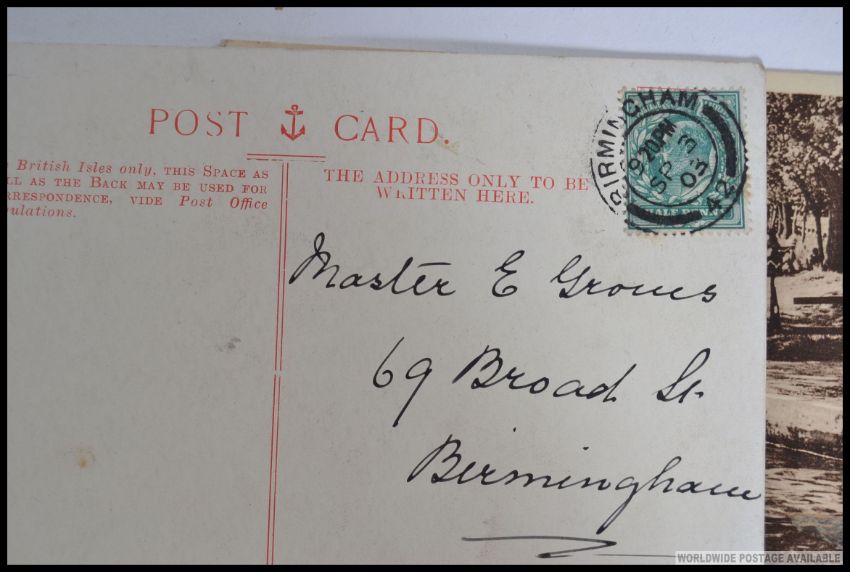 POST CARD.
British Isles only, THIS SPACE AS
AS THE BACK MAY BE USED FOR
RRESPONDENCE, VIDE Post Office
ulations.
THE ADDRESS ONLY TO BE
WRITTEN HERE.
BIRMINGHAM
9 20PM
SP 3
03
42
Master E Groves
69 Broad St
Birmingham
WORLDWIDE POSTAGE AVAILABLE